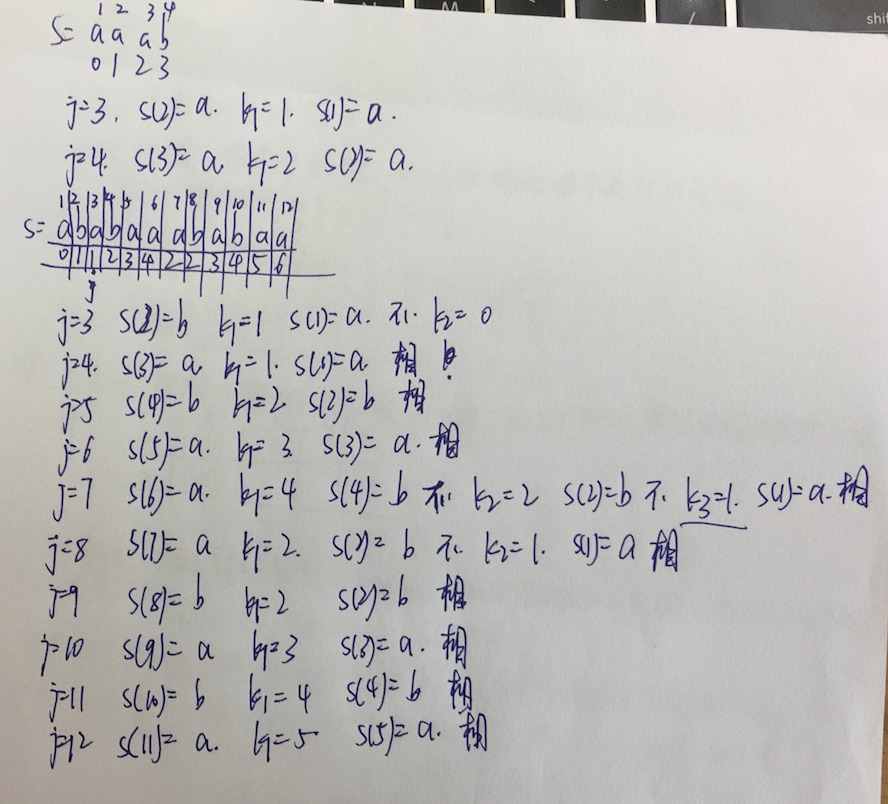 1 2 3 4
S= a a a b
0 1 2 3
j=3. S(2)=a. k₁=1. S(1)=a.
j=4. S(3)=a k₁=2 S(2)=a.
1 2 3 4 5 6 7 8 9 10 11 12
S= a b a b a a a b a b a a
0 1 1 2 3 4 2 2 3 4 5 6
j
j=3 S(2)=b k₁=1 S(1)=a. 不. k₂=0
j=4. S(3)=a k₁=1. S(1)=a 相
j=5 S(4)=b k₁=2 S(2)=b 相
j=6 S(5)=a. k₁=3. S(3)=a. 相
j=7 S(6)=a. k₁=4 S(4)=b 不. k₂=2 S(2)=b 不. k₃=1. S(1)=a. 相
j=8 S(7)=a k₁=2. S(2)=b 不. k₂=1. S(1)=a 相
j=9 S(8)=b k₁=2 S(2)=b 相
j=10 S(9)=a k₁=3 S(3)=a. 相
j=11 S(10)=b k₁=4 S(4)=b 相
j=12 S(11)=a. k₁=5 S(5)=a. 相